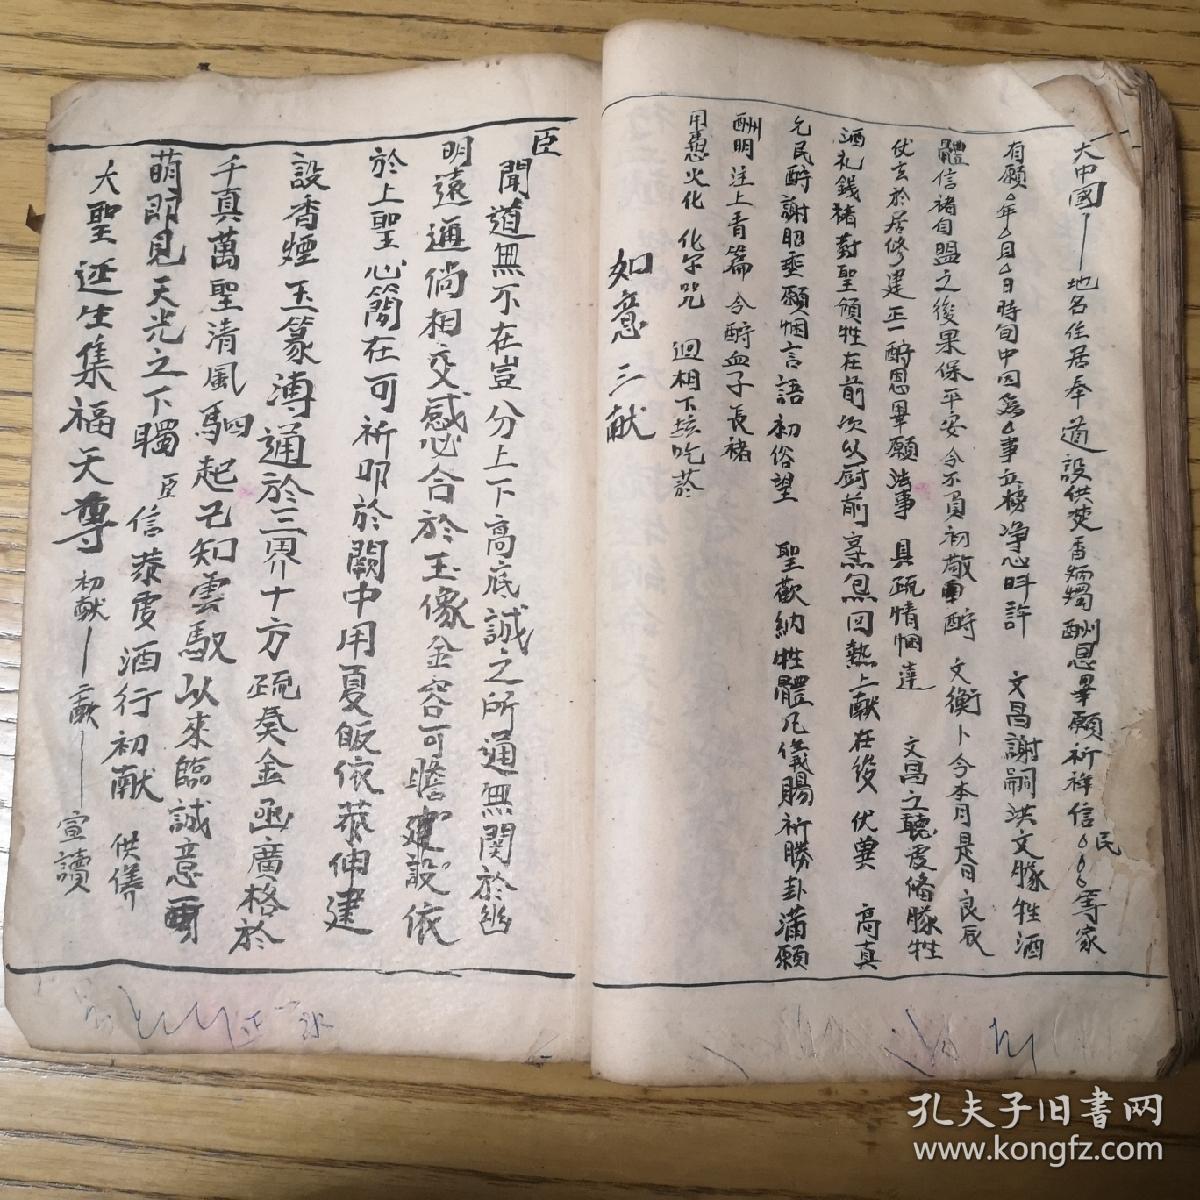 大中國｜地名住居奉道設供焚香炳燭酬恩畢願祈祥信民厶厶厶等家
有願厶年厶月厶日時旬中因為厶事立榜淨心叶許　文昌謝嗣洪文豚牲酒
體信禇自盟之後果保平安今不負初敬酧　文衡卜今本月是日良辰
伏玄於居修建正一酧恩畢願法事　具疏情悃達　文昌之聽虔俻豚牲
酒礼錢猪對聖領牲在前次從厨前烹炰回熟上獻在後　伏兾　高真
允民酧謝昭垂願悃言語初俗望　聖歡納牲體凡儀賜祈勝卦滿願
酬明注上青篇今酧血子長禇
用憑火化　化字咒　迴相下
如意三献
臣
聞道無不在豈分上下高底誠之所通無関於幽
明遠通倘相交感必合於玉像金容可瞻建設依
於上聖心簡在可祈叩於闕中用夏皈依恭伸建
設香煙玉篆溥通於三界十方疏癸金凾廣格於
千真萬聖清風駟起已知雲馭以來臨誠意
萌即見天光之下矚　臣信恭虔酒行初献　供儀
大聖延生集福天尊　初献｜二献｜宣讀
孔夫子旧書网
www.kongfz.com